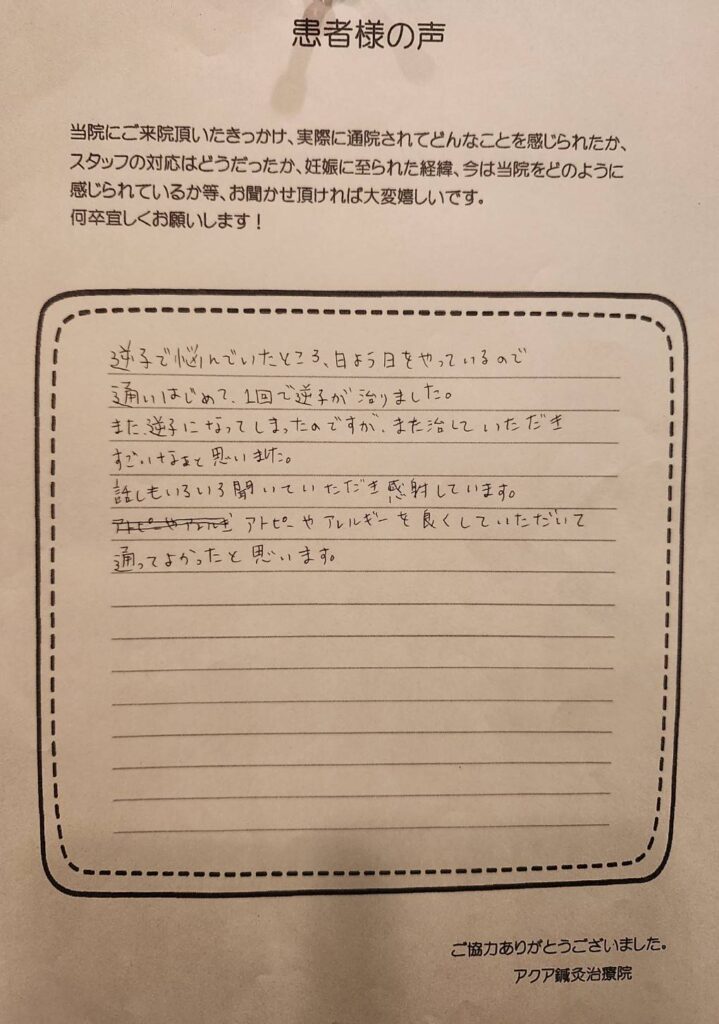 患者様の声
当院にご来院頂いたきっかけ、実際に通院されてどんなことを感じられたか、
スタッフの対応はどうだったか、妊娠に至られた経緯、今は当院をどのように
感じられているか等、お聞かせ頂ければ大変嬉しいです。
何卒宜しくお願いします！
逆子で悩んでいたところ、日よう日をやっているので
通いはじめて、1回で逆子が治りました。
また逆子になってしまったのですが、また治していただき
すごいなぁと思いました。
話しもいろいろ聞いていただき感射しています。
アトピーやアレルギ アトピーやアレルギーを良くしていただいて
通ってよかったと思います。
ご協力ありがとうございました。
アクア鍼灸治療院